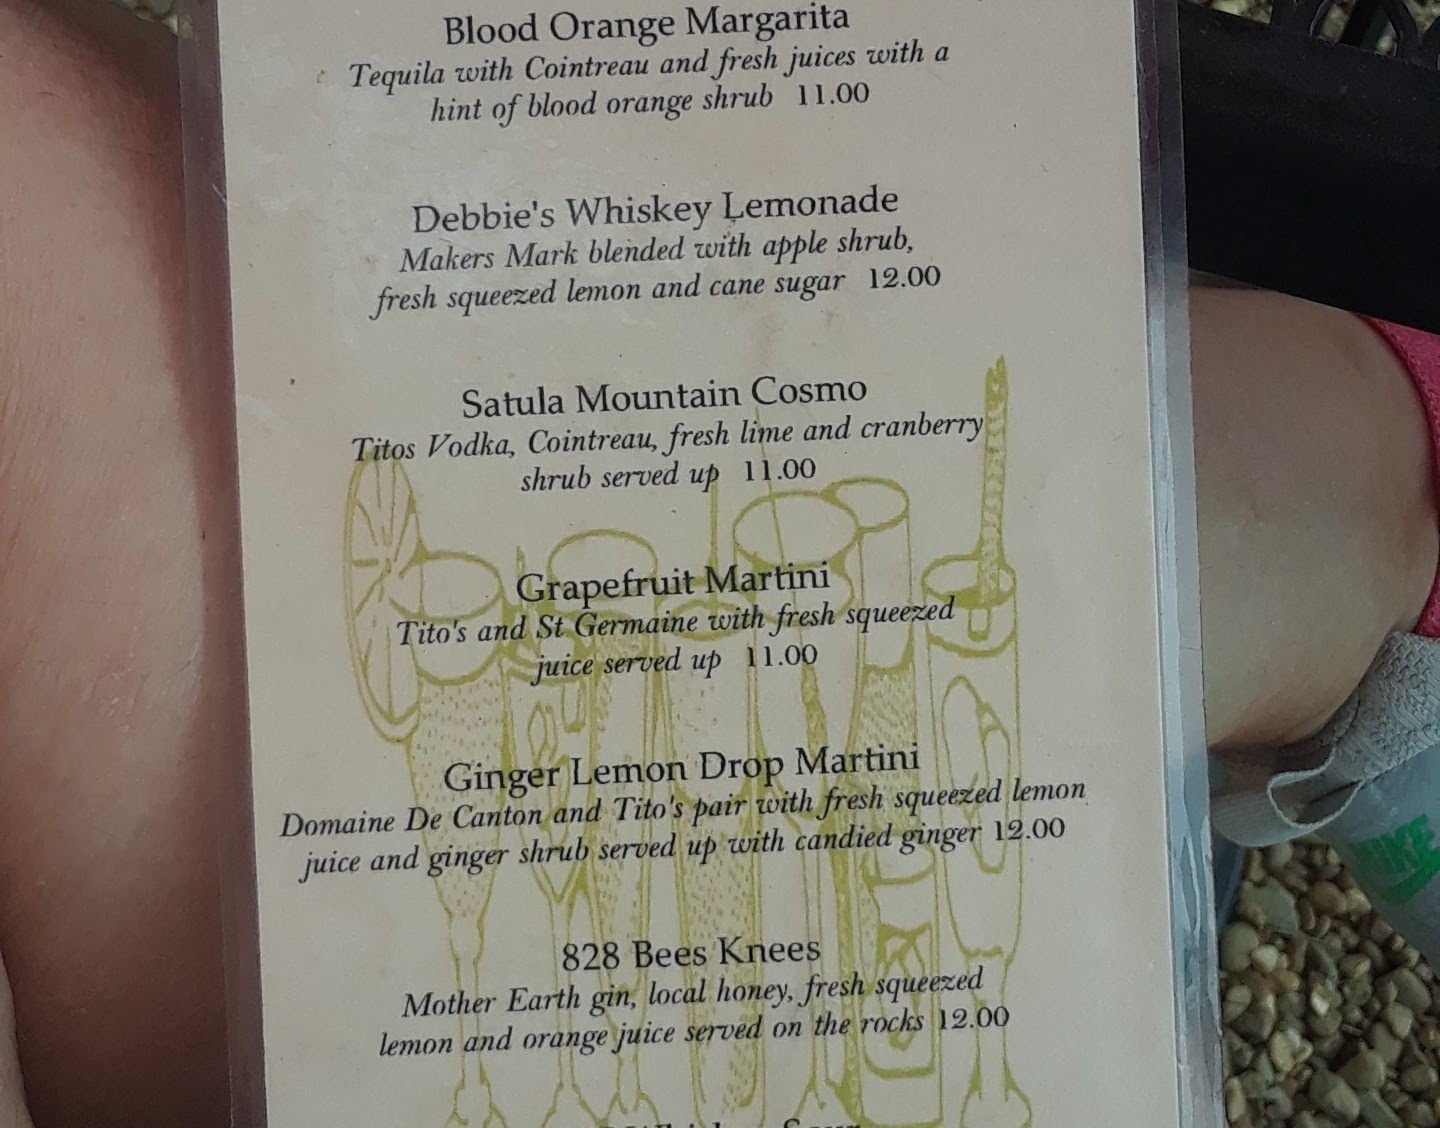 Blood Orange Margarita
Tequila with Cointreau and fresh juices with a
hint of blood orange shrub 11.00
Debbie's Whiskey Lemonade
Makers Mark blended with apple shrub,
fresh squeezed lemon and cane sugar 12.00
Satula Mountain Cosmo
Titos Vodka, Cointreau, fresh lime and cranberry
shrub served up 11.00
Grapefruit Martini
Tito's and St Germaine with fresh squeezed
juice served up 11.00
Ginger Lemon Drop Martini
Domaine De Canton and Tito's pair with fresh squeezed lemon
juice and ginger shrub served up with candied ginger 12.00
828 Bees Knees
Mother Earth gin, local honey, fresh squeezed
lemon and orange juice served on the rocks 12.00
Whiskey Sour
NIKE